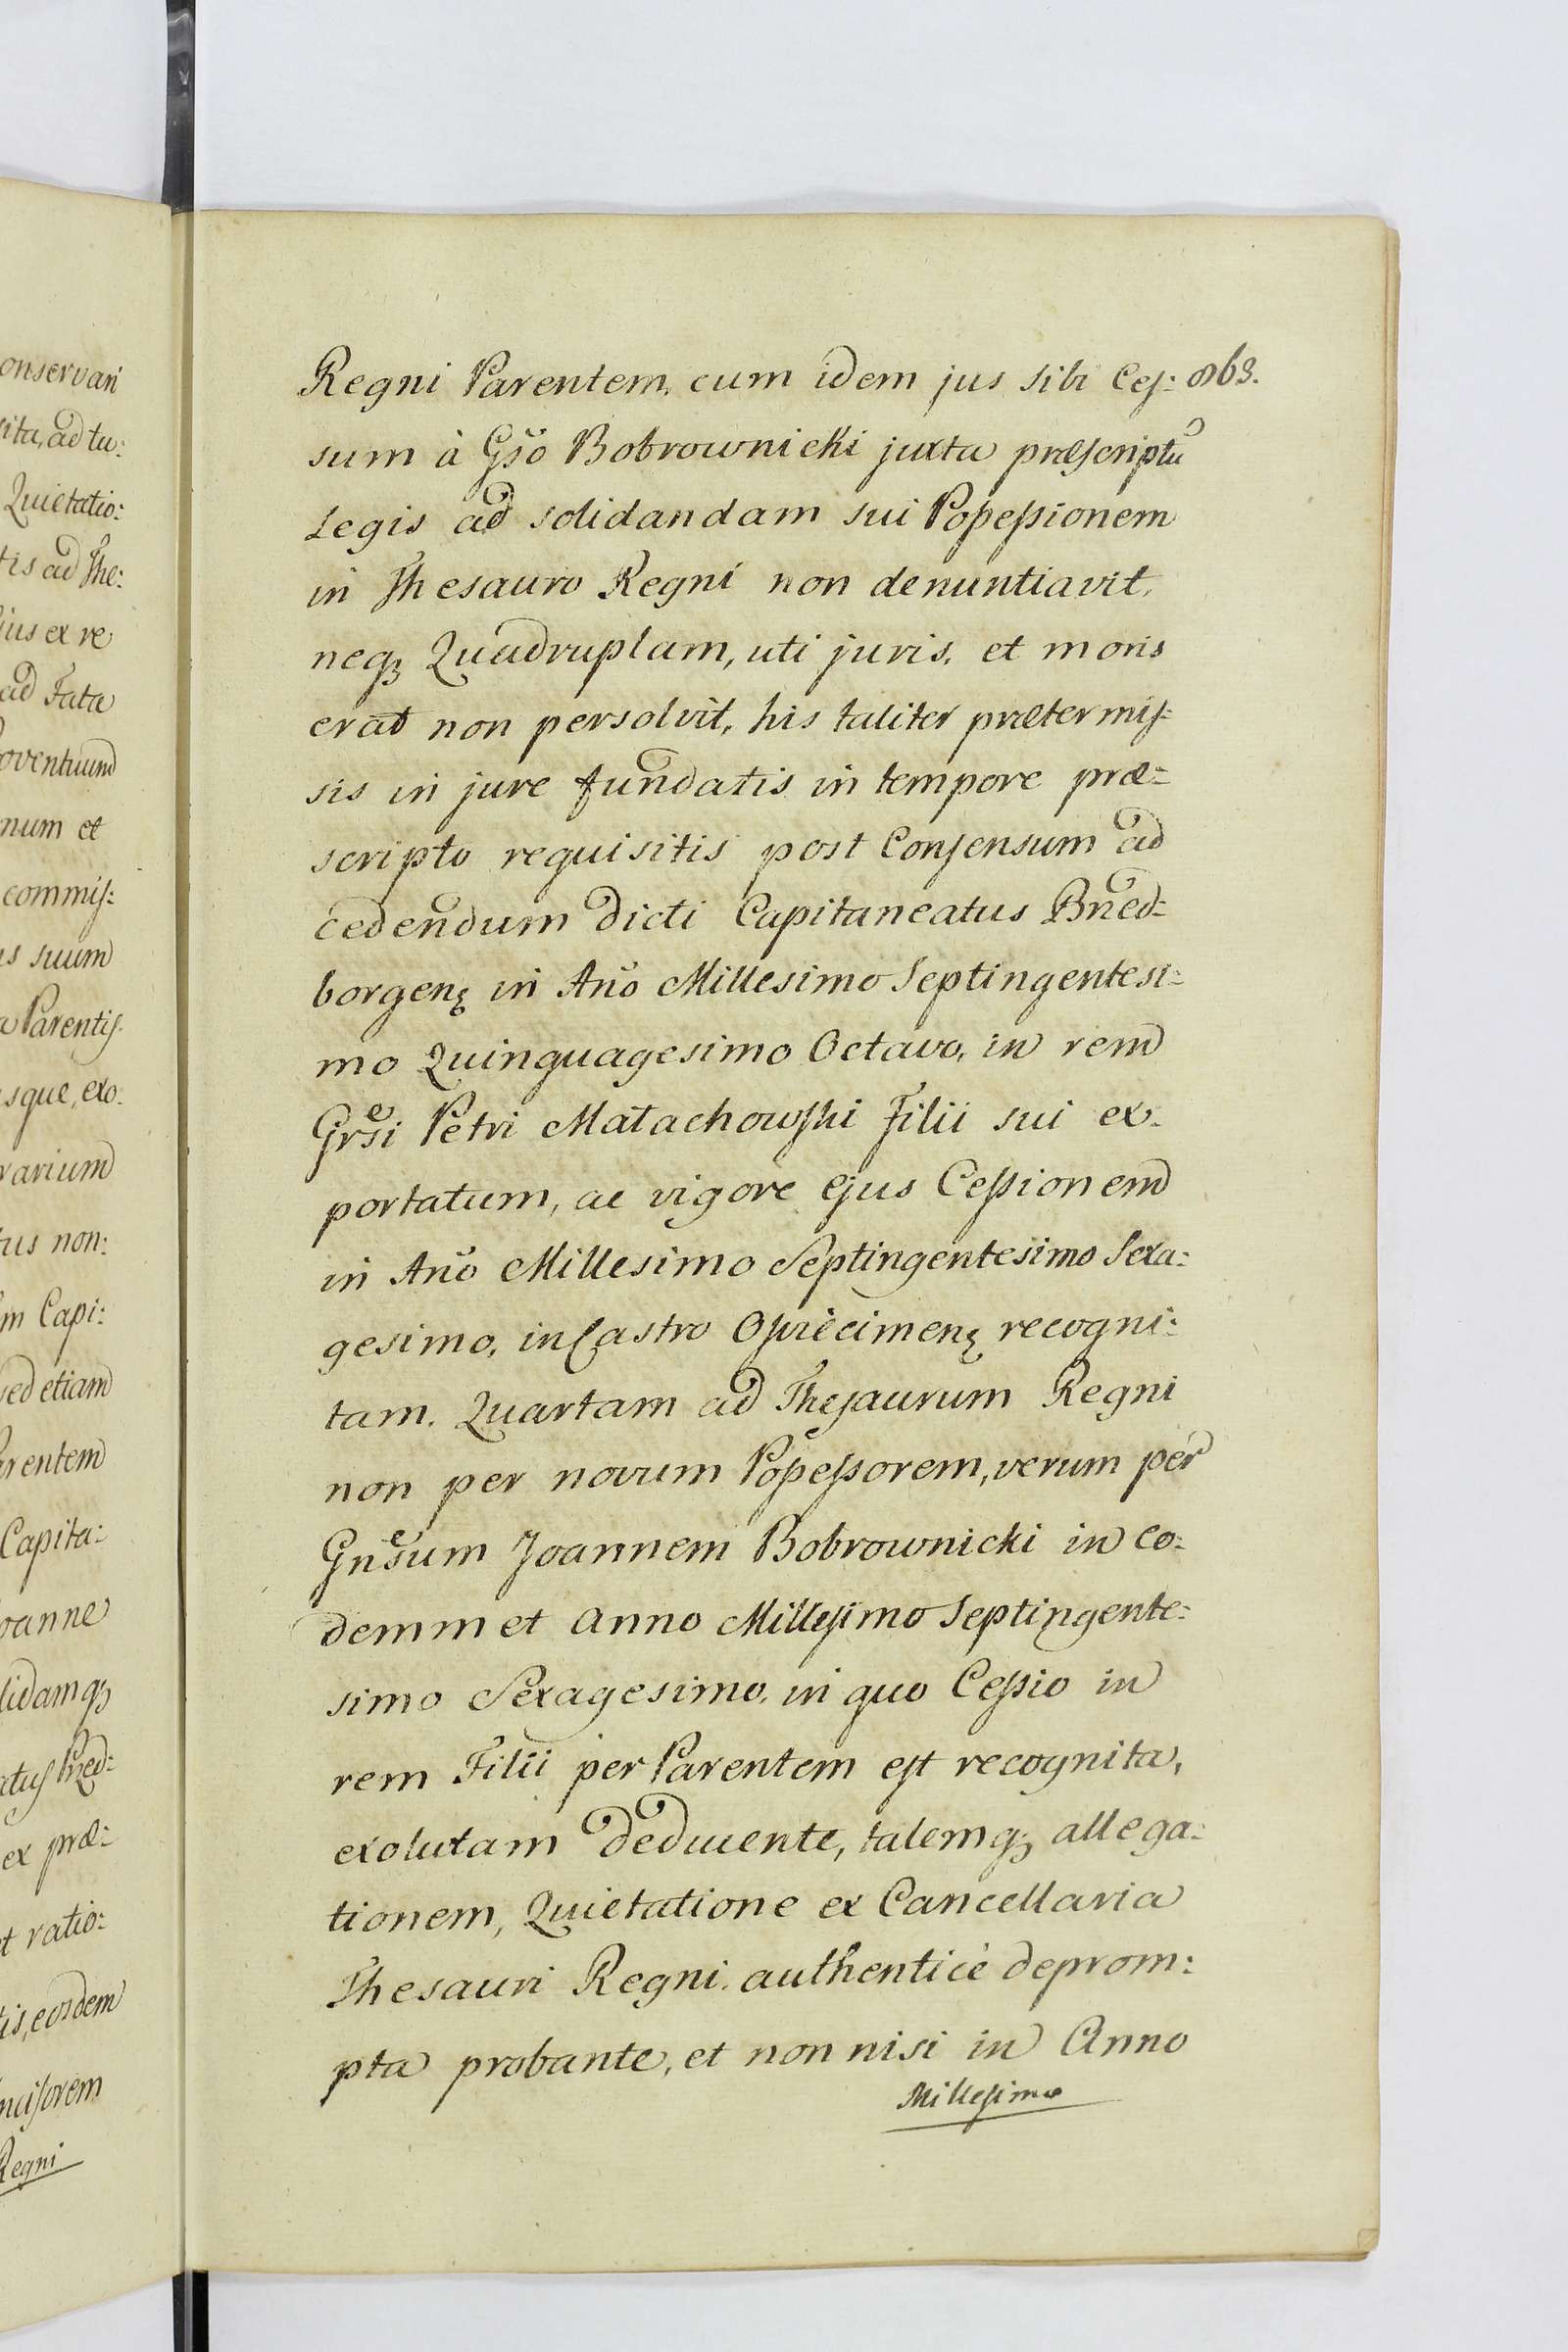 onservari
sita, ad tu:
Quietatio:
tis ad The:
jus ex re
ad Fata
oventuum
num et
commis:
us suum
a Parentis
usque, exo:
rarium
tus non:
m Capi:
sed etiam
arentem
Capita:
oanne
lidamq3
atus Pried:
ex præ:
et ratio:
tis, eordem
Regni
Regni Parentem, cum idem jus sibi Ces:
sum à Gs̃o Bobrownicki juxta præscriptũ
Legis ad solidandam sui Possessionem
in Thesauro Regni non denuntiavit,
neq3 Quadruplam, uti juris, et moris
erat non persolvit, his taliter prætermis:
sis in jure fundatis in tempore præ:
scripto requisitis post Consensum ad
cedendum dicti Capitaneatus Pried:
borgenę in Añ̃o Millesimo Septingentesi:
mo Quinquagesimo Octavo, in rem
Grsi Petri Małachowski Filii sui ex:
portatum, ac vigore ejus Cessionem
in Añ̃o Millesimo Septingentesimo Sexa:
gesimo, in Castro Opoecimenę recogni:
tam. Quartam ad Thesaurum Regni
non per novum Possessorem, verum per
Gnẽsum Joannem Bobrownicki in eo:
demmet Anno Millesimo Septingente:
simo Sexagesimo, in quo Cessio in
rem Filii per Parentem est recognita,
exolutam deducente, talemq3 allega:
tionem, Quietatione ex Cancellaria
Thesauri Regni authenticè deprom:
pta probante, et non nisi in Anno
Millesimo